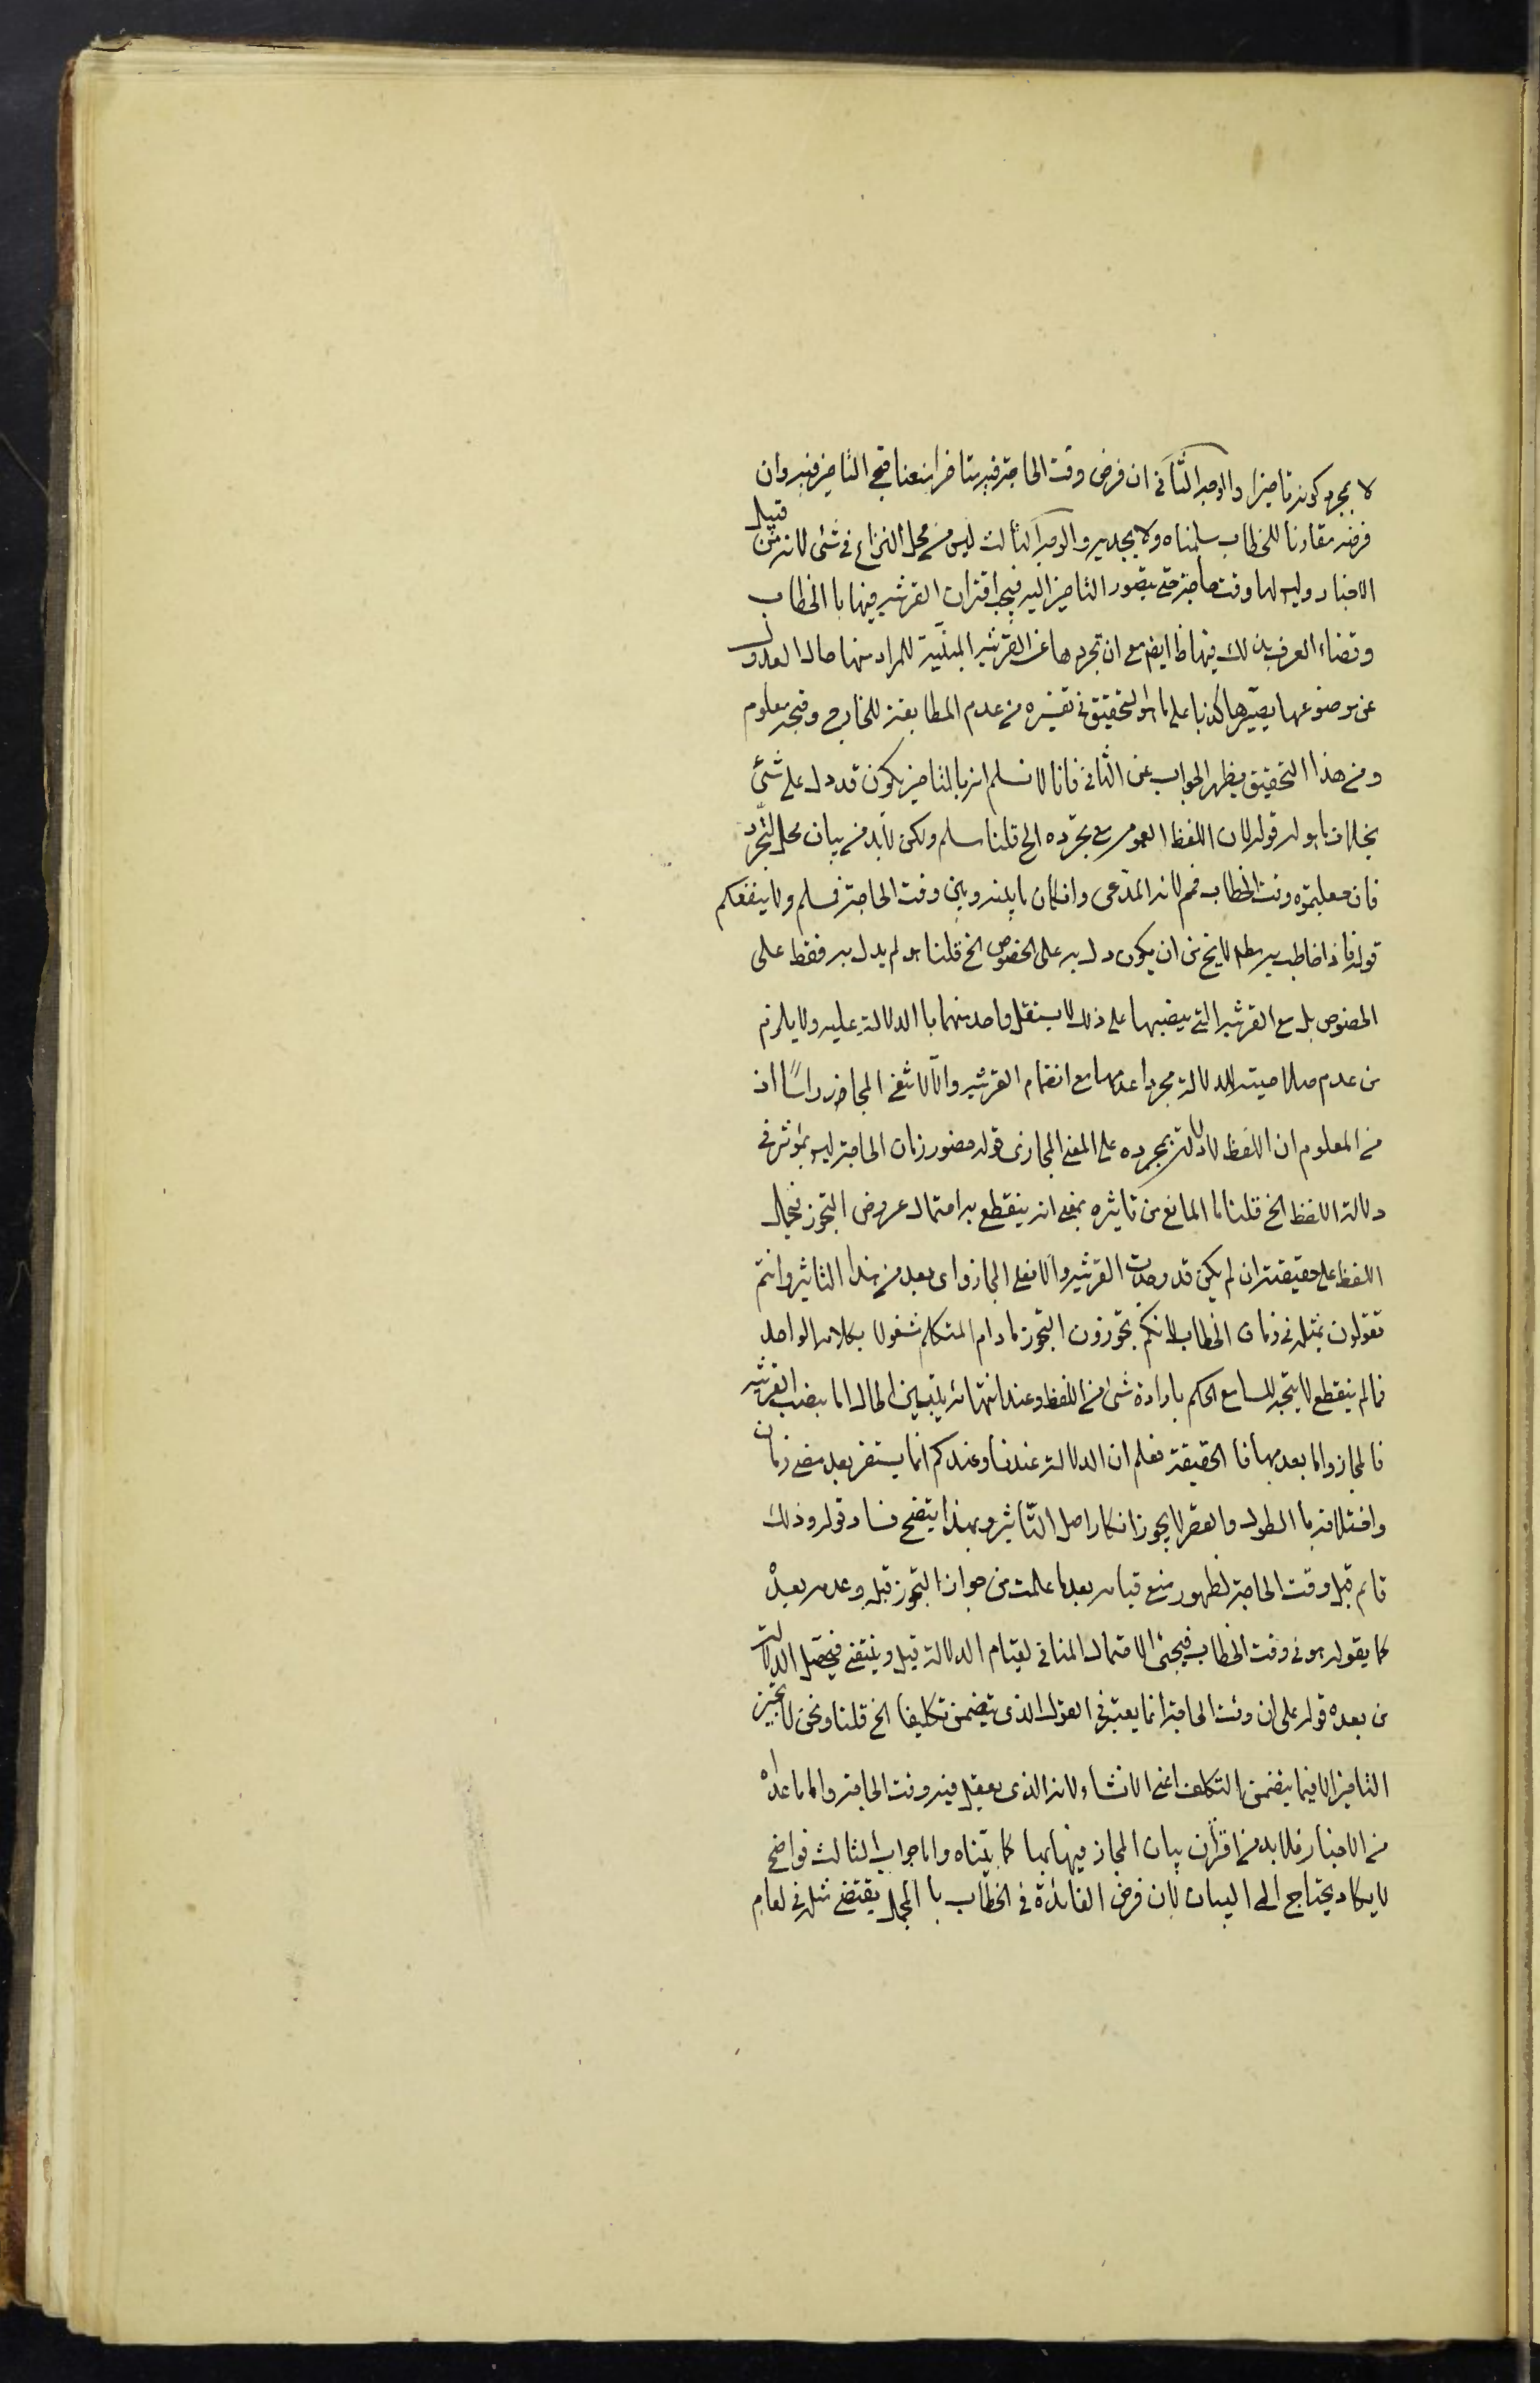 لا بمجرد كونه تاخيرا والوجه الثانى ان فرض وقت الحاجة فيه متاخرا منعنا قبح التاخير فيه وان
فرضه مقارنا للخطاب سلمناه ولا يجديه والوجه الثالث ليس من محل النزاع فى شئ لانه من قبيل
الاخبار وليس لها وقت حاجة حتى يتصور التاخير اليه فيجب اقتران القرينة فيها با الخطاب
وقضاء العرف بذلك فيها ظ ايضا مع ان تجردها عن القرينة المبنيّة للمراد منها حال العدول
عن موضوعها يصيّرها كذبا على ما هو التحقيق فى تفسيره من عدم المطابقة للخارج وقبحه معلوم
ومن هذا التحقيق يظهر الجواب عن الثانى فانا لا نسلم انه بالتاخير يكون قد دل على شئ
بخلاف ما هو له قوله لان اللفظ العموم مع تجرّده الخ قلنا مسلم ولكن لابد من بيان محل التجرّد
فان جعلتموه وقت الخطاب فمم لانه المدّعى وان كان ما بينه وبين وقت الحاجة فمسلم ولا ينفعكم
قوله فاذا خاطب به مطلقا لا يخ من ان يكون دل به على الخصوص الخ قلنا هو لم يدل به فقط على
الخصوص بل مع القرينة التى ينصبها على ذلك لا يستقل واحد منهما با الدلالة عليه ولا يلزم
من عدم صلاحيته للدلالة مجردا عدمها مع انضمام القرينة والّا لانتفى المجاز راسًا اذ
من المعلوم ان اللفظ لا دلالة بمجرده على المعنى المجازى قوله حضور زمان الحاجة ليس بمؤثر فى
دلالة اللفظ الخ قلنا ما المانع من تاثيره بمعنى انه ينقطع به احتمال عروض التجوز فيحمل
اللفظ على حقيقته ان لم يكن قد وجدت القرينة والا فعلى المجاز واى بعد من هذا التاثير وانتم
تقولون بمثله فى زمان الخطاب لانكم تجوّزون التجوز ما دام المتكلم مشغولا بكلامه الواحد
فما لم ينقطع لا يتجه للسامع الحكم بارادة شئ من اللفظ وعند انتهائه يتبين الحال اما بنصب القرينة
فالمجاز واما بعدمها فا الحقيقة فعلم ان الدلالة عندنا وعندكم انما يستقر بعد مضى زمان
واختلافه با الطول والقصر لا يجوز انكار اصل التّاثير وبهذا يتضح فساد قوله وذلك
قائم قبل وقت الحاجة لظهور منع قيامه بعد ما علمت من جواز التجوز قبله وعدمه بعده
كما يقوله هو فى وقت الخطاب فيجئ الاحتمال المنافى لقيام الدلالة قبل وينتفى فيحصل الدلالة
من بعده قوله على ان وقت الحاجة انما يعتبر فى القول الذى يتضمن تكليفا الخ قلنا ونحن لا نجيز
التاخير الا فيما يتضمن التكلف اعنى الانشاء لانه الذى يعقل فيه وقت الحاجة واما ما عداه
من الاخبار فلا بد من اقتران بيان المجاز فيها بها كما بيّناه واما جواب الثالث فواضح
لا يكاد يحتاج الى البيان لان فرض الفائدة فى الخطاب با المجمل يقتضى مثله فى العام